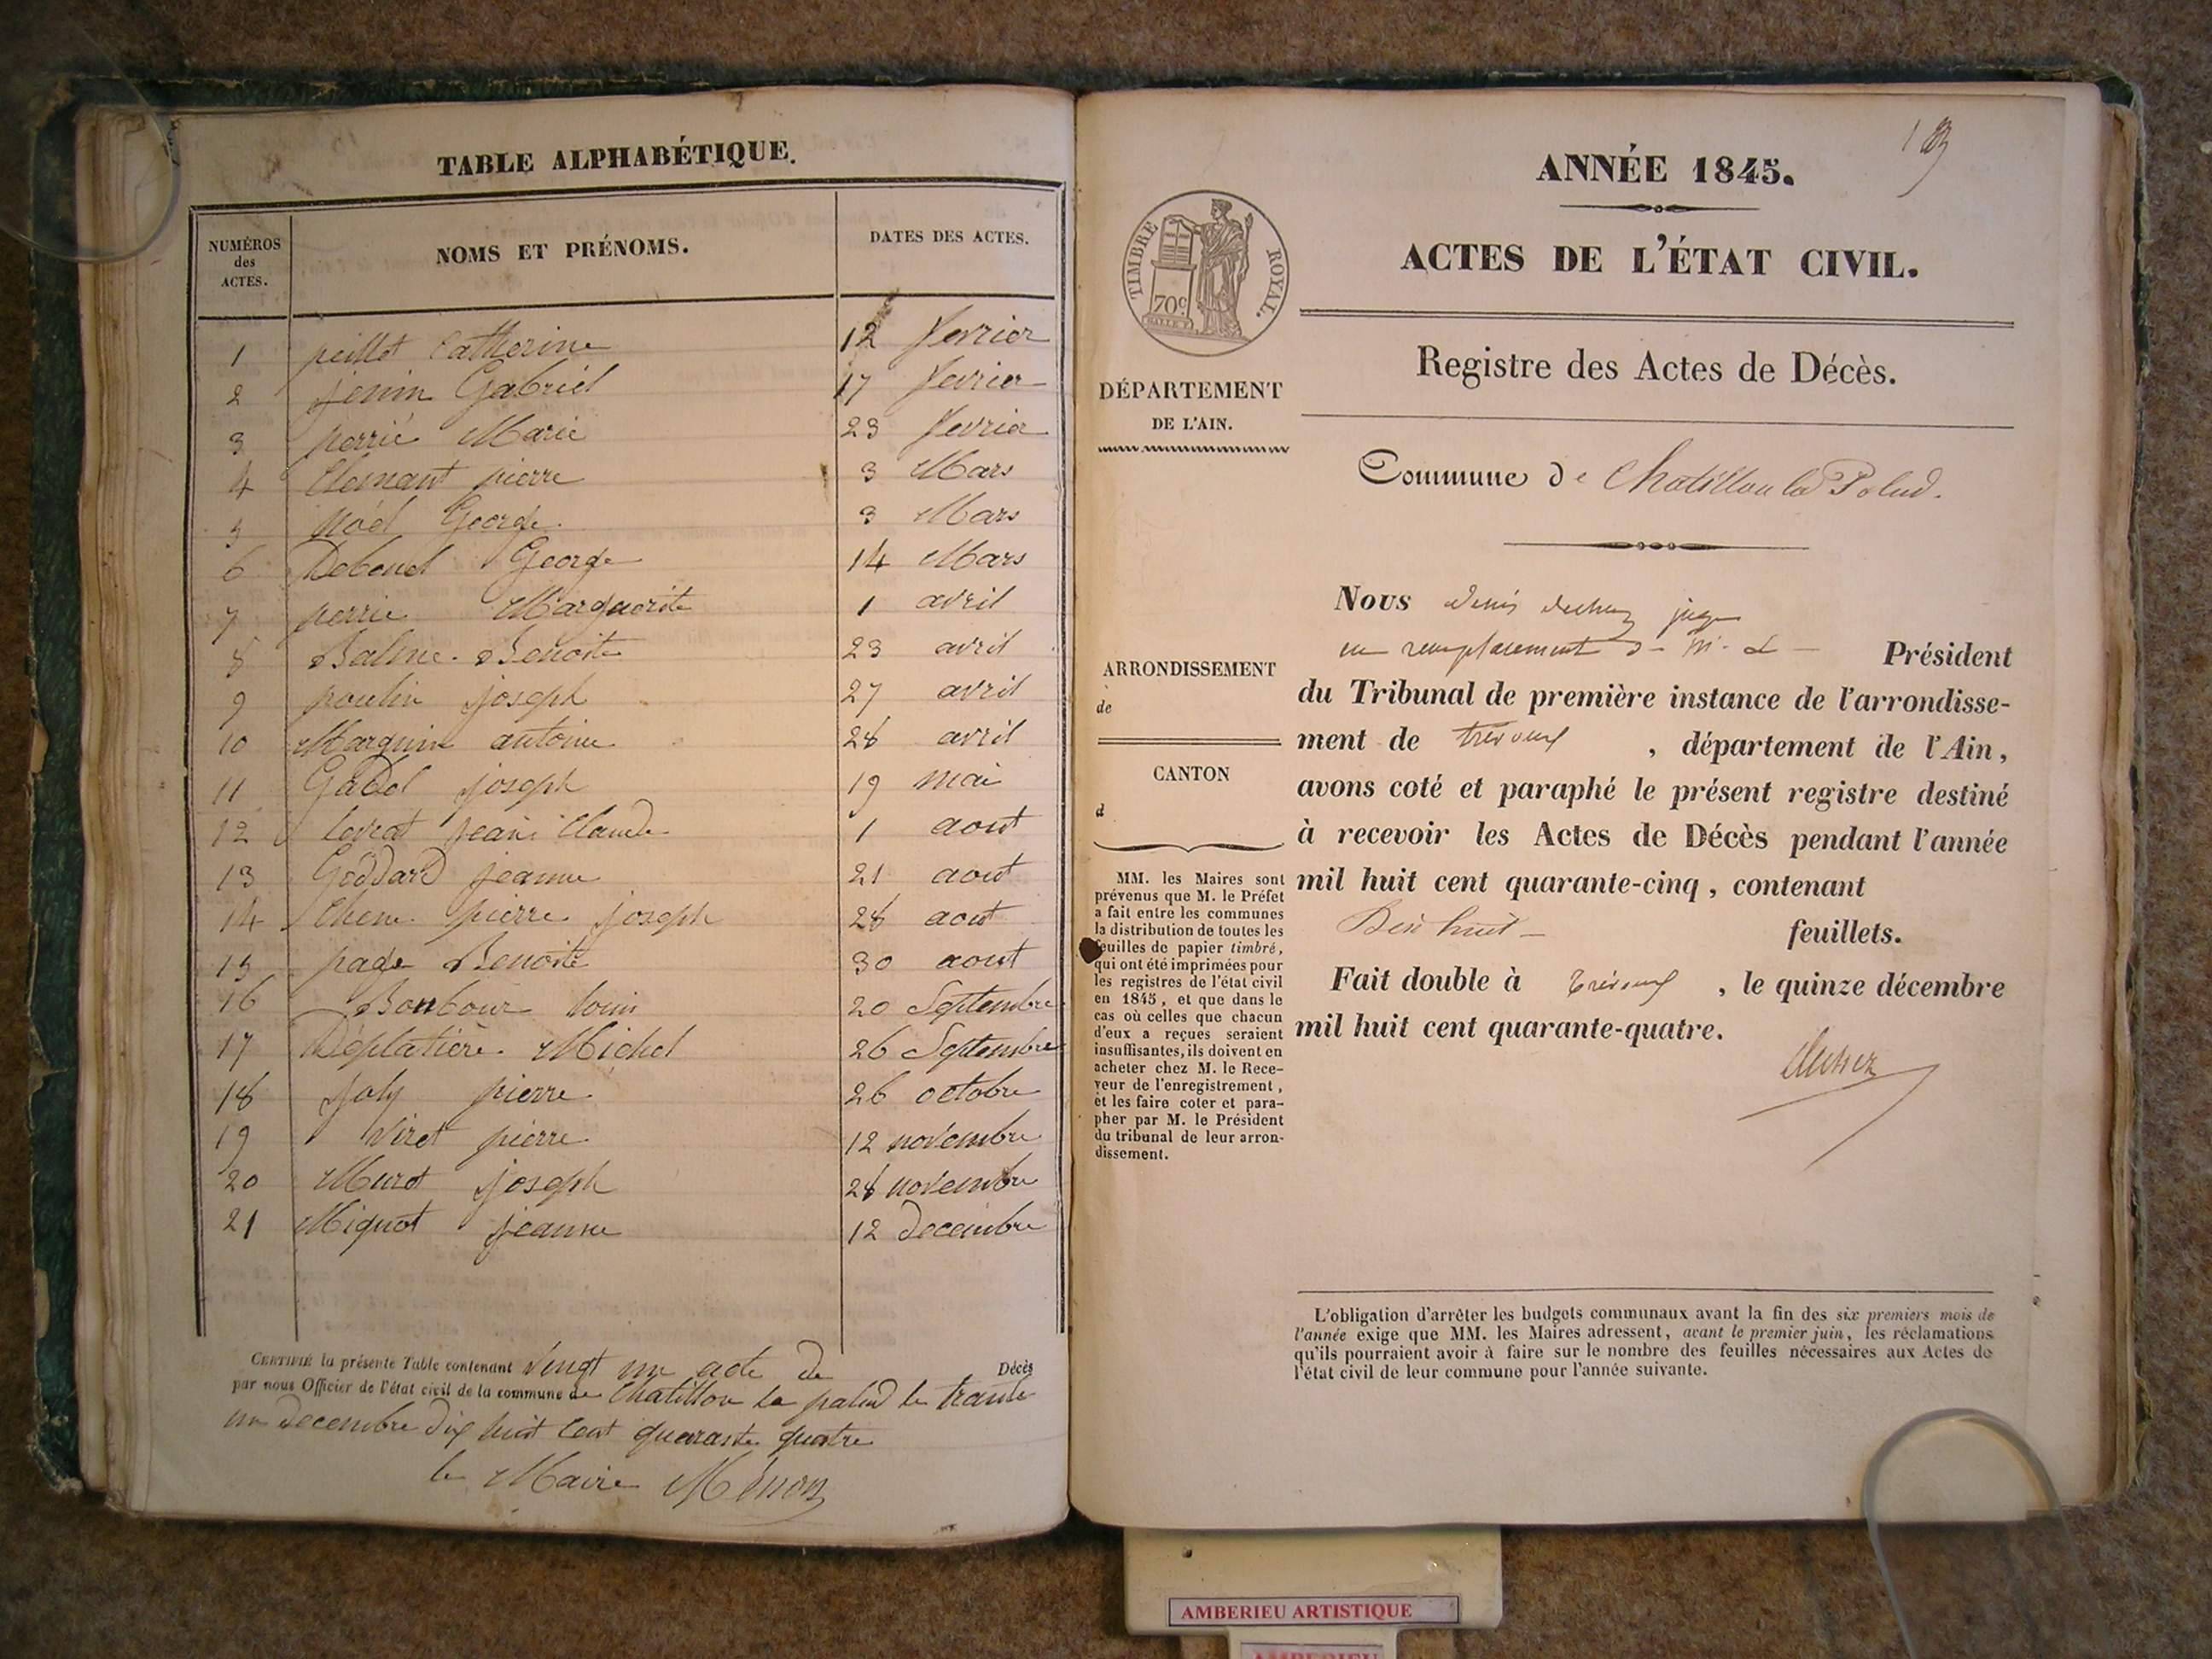 TABLE ALPHABÉTIQUE.
NUMÉROS des ACTES. NOMS ET PRÉNOMS. DATES DES ACTES.
1 peillot Catherine 12 fevrier
2 jenin Gabriel 17 fevrier
3 perrié Marie 23 fevrier
4 Clemant pierre 3 Mars
5 Noël George 3 Mars
6 Debenel George 14 Mars
7 perrie Marguerite 1 avril
8 Balme Benoite 23 avril
9 poulin joseph 27 avril
10 Marguin antoine 28 avril
11 Gadol joseph 19 mai
12 lovrat jean Claude 1 aout
13 Goddard jeanne 21 aout
14 Chene pierre joseph 28 aout
15 page Benoite 30 aout
16 Bonbour louis 20 Septembre
17 Déplatière Michel 26 Septembre
18 joly pierre 26 octobre
19 Viret pierre 12 novembre
20 Murot joseph 28 novembre
21 Miguot jeanne 12 decembre
CERTIFIÉ la présente Table contenant vingt un acte de Décès
par nous Officier de l'état civil de la commune de Chatillon la palud le trante
un decembre dix huit cent quarante quatre
le Maire Ménon
ANNÉE 1845.
ACTES DE L'ÉTAT CIVIL.
TIMBRE ROYAL.
70c
Registre des Actes de Décès.
DÉPARTEMENT
DE L'AIN.
Commune de Chatillon la Palud.
ARRONDISSEMENT
de
CANTON
d
MM. les Maires sont
prévenus que M. le Préfet
a fait entre les communes
la distribution de toutes les
feuilles de papier timbré,
qui ont été imprimées pour
les registres de l'état civil
en 1845, et que dans le
cas où celles que chacun
d'eux a reçues seraient
insuffisantes, ils doivent en
acheter chez M. le Rece-
veur de l'enregistrement,
et les faire coter et para-
pher par M. le Président
du tribunal de leur arron-
dissement.
Nous Denis juge
en remplacement de M. le Président
du Tribunal de première instance de l'arrondisse-
ment de trévoux , département de l'Ain,
avons coté et paraphé le présent registre destiné
à recevoir les Actes de Décès pendant l'année
mil huit cent quarante-cinq, contenant
Dix huit feuillets.
Fait double à trévoux , le quinze décembre
mil huit cent quarante-quatre.
L'obligation d'arrêter les budgets communaux avant la fin des six premiers mois de
l'année exige que MM. les Maires adressent, avant le premier juin, les réclamations
qu'ils pourraient avoir à faire sur le nombre des feuilles nécessaires aux Actes de
l'état civil de leur commune pour l'année suivante.
AMBERIEU ARTISTIQUE
AMBERIEU